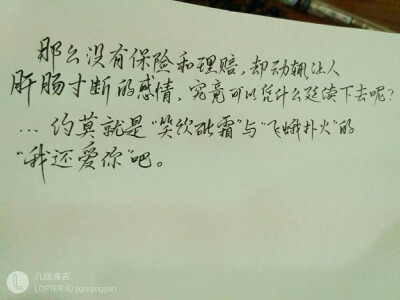 那么没有保险和理赔，却动辄让人
肝肠寸断的感情，究竟可以凭什么延续下去呢？
… 约莫就是“笑饮砒霜”与“飞蛾扑火”的
“我还爱你”吧。
LOFTER